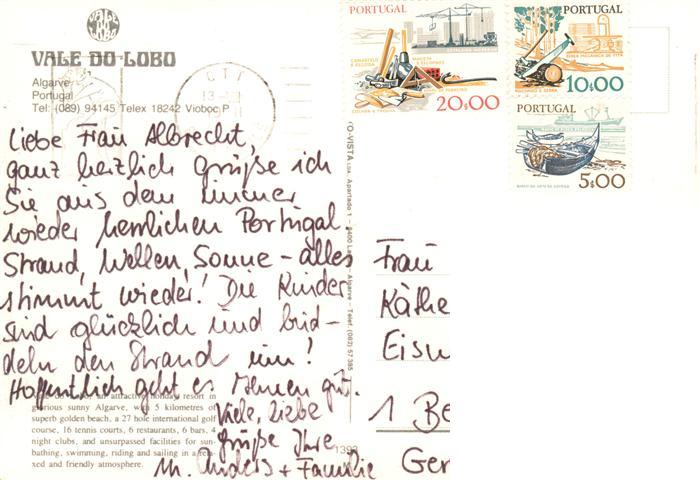 VALE DO LOBO
VALE DO LOBO
Algarve
Portugal
Tel: (089) 94145 Telex 18242 Vioboc P
CTT
Liebe Frau Albrecht,
ganz herzlich grüße ich
Sie aus dem immer
wieder herrlichen Portugal
Strand, Wellen, Sonne - alles
stimmt wieder! Die Kinder
sind glücklich und bud-
deln den Strand um!
Hoffentlich geht es Ihnen gut.
Viele, liebe
Grüße Ihre
M. Anders + Familie
an attractive holiday resort in
glorious sunny Algarve, with 5 kilometres of
superb golden beach, a 27 hole international golf
course, 16 tennis courts, 6 restaurants, 6 bars, 4
night clubs, and unsurpassed facilities for sun-
bathing, swimming, riding and sailing in a rela-
xed and friendly atmosphere.
1393
PORTUGAL
20$00
PORTUGAL
10$00
PORTUGAL
5$00
Frau
Käthe
Eisw
1 Be
Ger